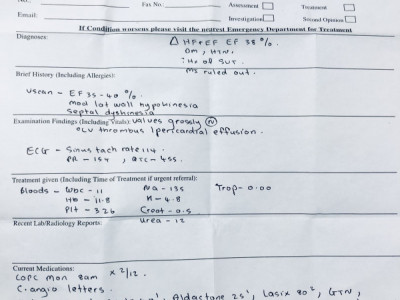 Fax No.:
Assessment
Treatment
Email:
Investigation
Second Opinion
If Condition worsens please visit the nearest Emergency Department for Treatment
Diagnoses:
Δ HFrEF EF 38%.
DM, HTN.
: Hx of SVT
MS ruled out.
Brief History (Including Allergies):
Vscan - EF 35-40%.
mod lat wall hypokinesia
septal dyskinesia
Examination Findings (Including Vitals): valves grossly (N)
LV thrombus / pericardial effusion.
ECG - Sinus tach rate 114.
PR - 154, QTc - 455.
Treatment given (Including Time of Treatment if urgent referral):
Bloods - WBC - 11 Na - 135 Trop - 0.00
Hb - 11.8 K - 4.8
Plt - 326 Creat - 0.5
Recent Lab/Radiology Reports: Urea - 12
Current Medications:
COPC mon 8am x 2/12.
C. angio letters.
Aldactone 25, Lasix 80, GTN,